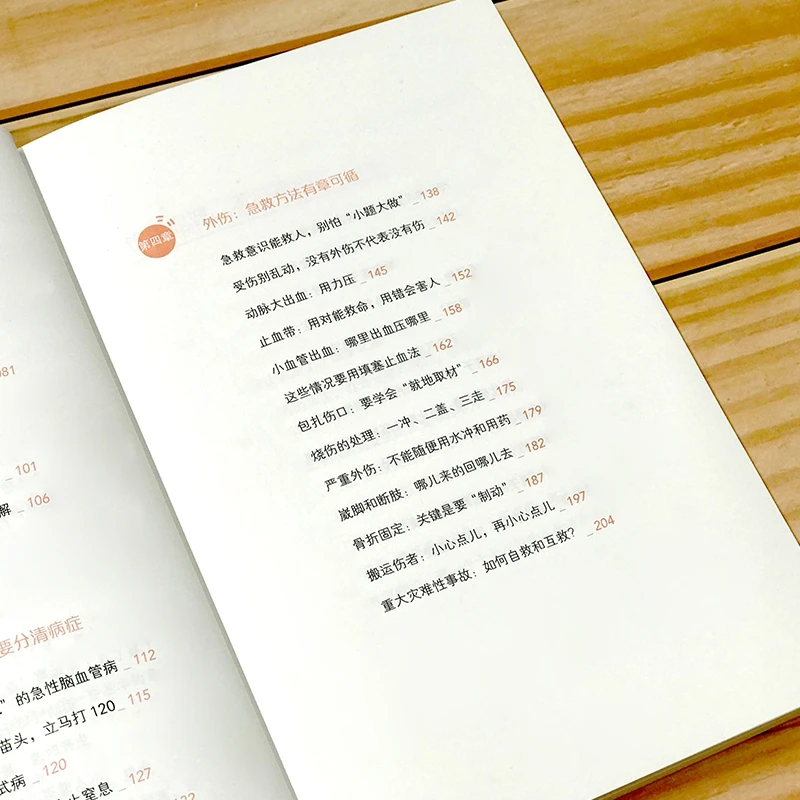 081
101
解_106
要分清病症
”的急性脑血管病_112
苗头，立马打120_115
式病_120
止窒息_127
132
第四章
外伤：急救方法有章可循
急救意识能救人，别怕“小题大做”_138
受伤别乱动，没有外伤不代表没有伤_142
动脉大出血：用力压_145
止血带：用对能救命，用错会害人_152
小血管出血：哪里出血压哪里_158
这些情况要用填塞止血法_162
包扎伤口：要学会“就地取材”_166
烧伤的处理：一冲、二盖、三走_175
严重外伤：不能随便用水冲和用药_179
崴脚和断肢：哪儿来的回哪儿去_182
骨折固定：关键是要“制动”_187
搬运伤者：小心点儿，再小心点儿_197
重大灾难性事故：如何自救和互救？_204